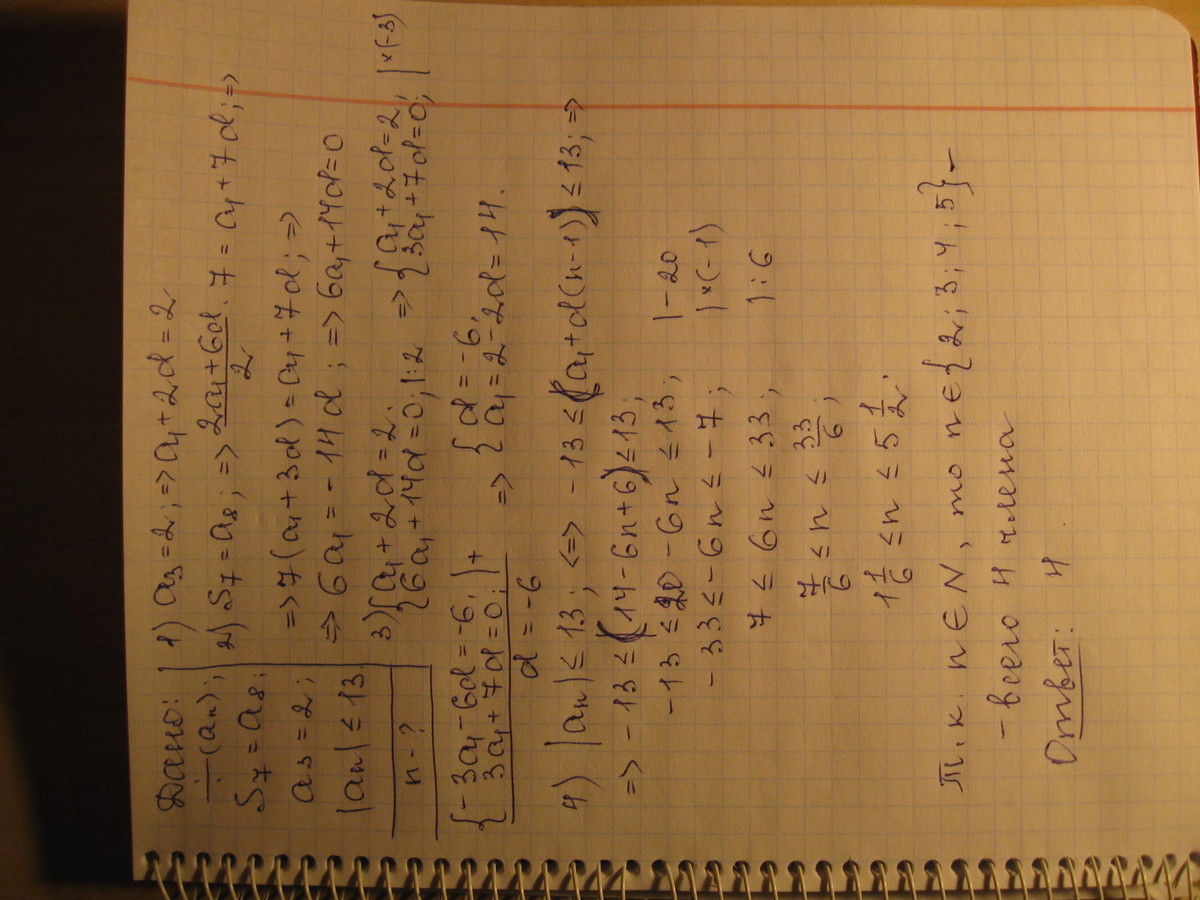 Дано:
÷(aₙ);
S₇ = a₈;
a₃ = 2;
|aₙ| ≤ 13
n - ?
1) a₃ = 2; => a₁ + 2d = 2
2) S₇ = a₈; => (2a₁ + 6d)/2 · 7 = a₁ + 7d; =>
=> 7(a₁ + 3d) = a₁ + 7d; =>
=> 6a₁ = -14d; => 6a₁ + 14d = 0
3) { a₁ + 2d = 2, 6a₁ + 14d = 0; |:2 => { a₁ + 2d = 2, |×(-3) 3a₁ + 7d = 0;
{ -3a₁ - 6d = -6, 3a₁ + 7d = 0; |+ => { d = -6, a₁ = 2 - 2d = 14.
d = -6
4) |aₙ| ≤ 13; <=> -13 ≤ (a₁ + d(n-1)) ≤ 13; =>
=> -13 ≤ (14 - 6n + 6) ≤ 13;
-13 ≤ 20 - 6n ≤ 13; |-20
-33 ≤ -6n ≤ -7; |×(-1)
7 ≤ 6n ≤ 33; |:6
7/6 ≤ n ≤ 33/6;
1 1/6 ≤ n ≤ 5 1/2.
Т.к. n ∈ N, то n ∈ {2; 3; 4; 5} –
- всего 4 члена
Ответ: 4